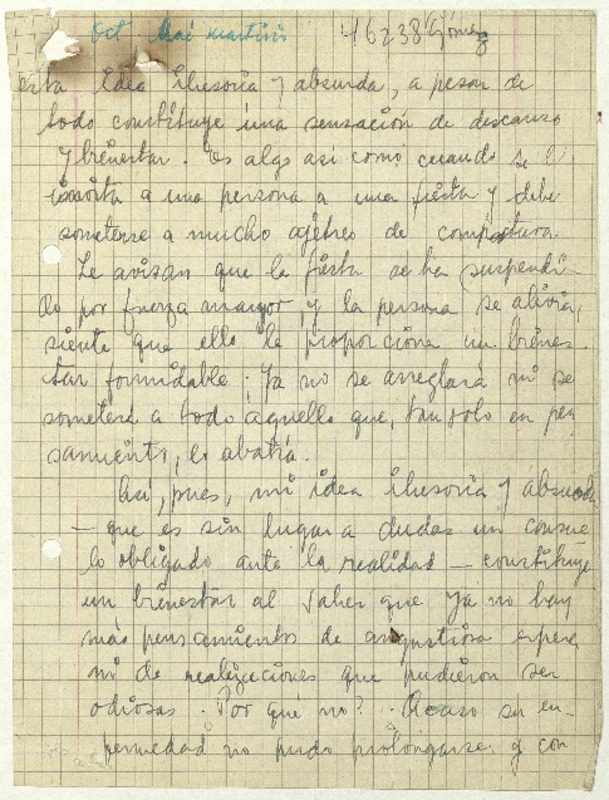 Oct Mac Martino 46238 Gómez
esta idea ilusoria y absurda, a pesar de
todo constituye una sensación de descanso
y bienestar. Es algo así como cuando se le
invita a una persona a una fiesta y debe
someterse a mucho ajetreo de compostura.
Le avisan que la fiesta se ha suspendi-
do por fuerza mayor, y la persona se alivia,
siente que ello le proporciona un bienes-
tar formidable; Ya no se arreglará ni se
someterá a todo aquello que, tan solo en pen
samiento, lo abatía.
Así, pues, mi idea ilusoria y absurda
— que es sin lugar a dudas un consue
lo obligado ante la realidad — constituye
un bienestar al saber que ya no hay
más pensamientos de angustiosa espera
ni de realizaciones que pudieron ser
odiosas. Por qué no? Acaso su en-
fermedad no pudo prolongarse y con